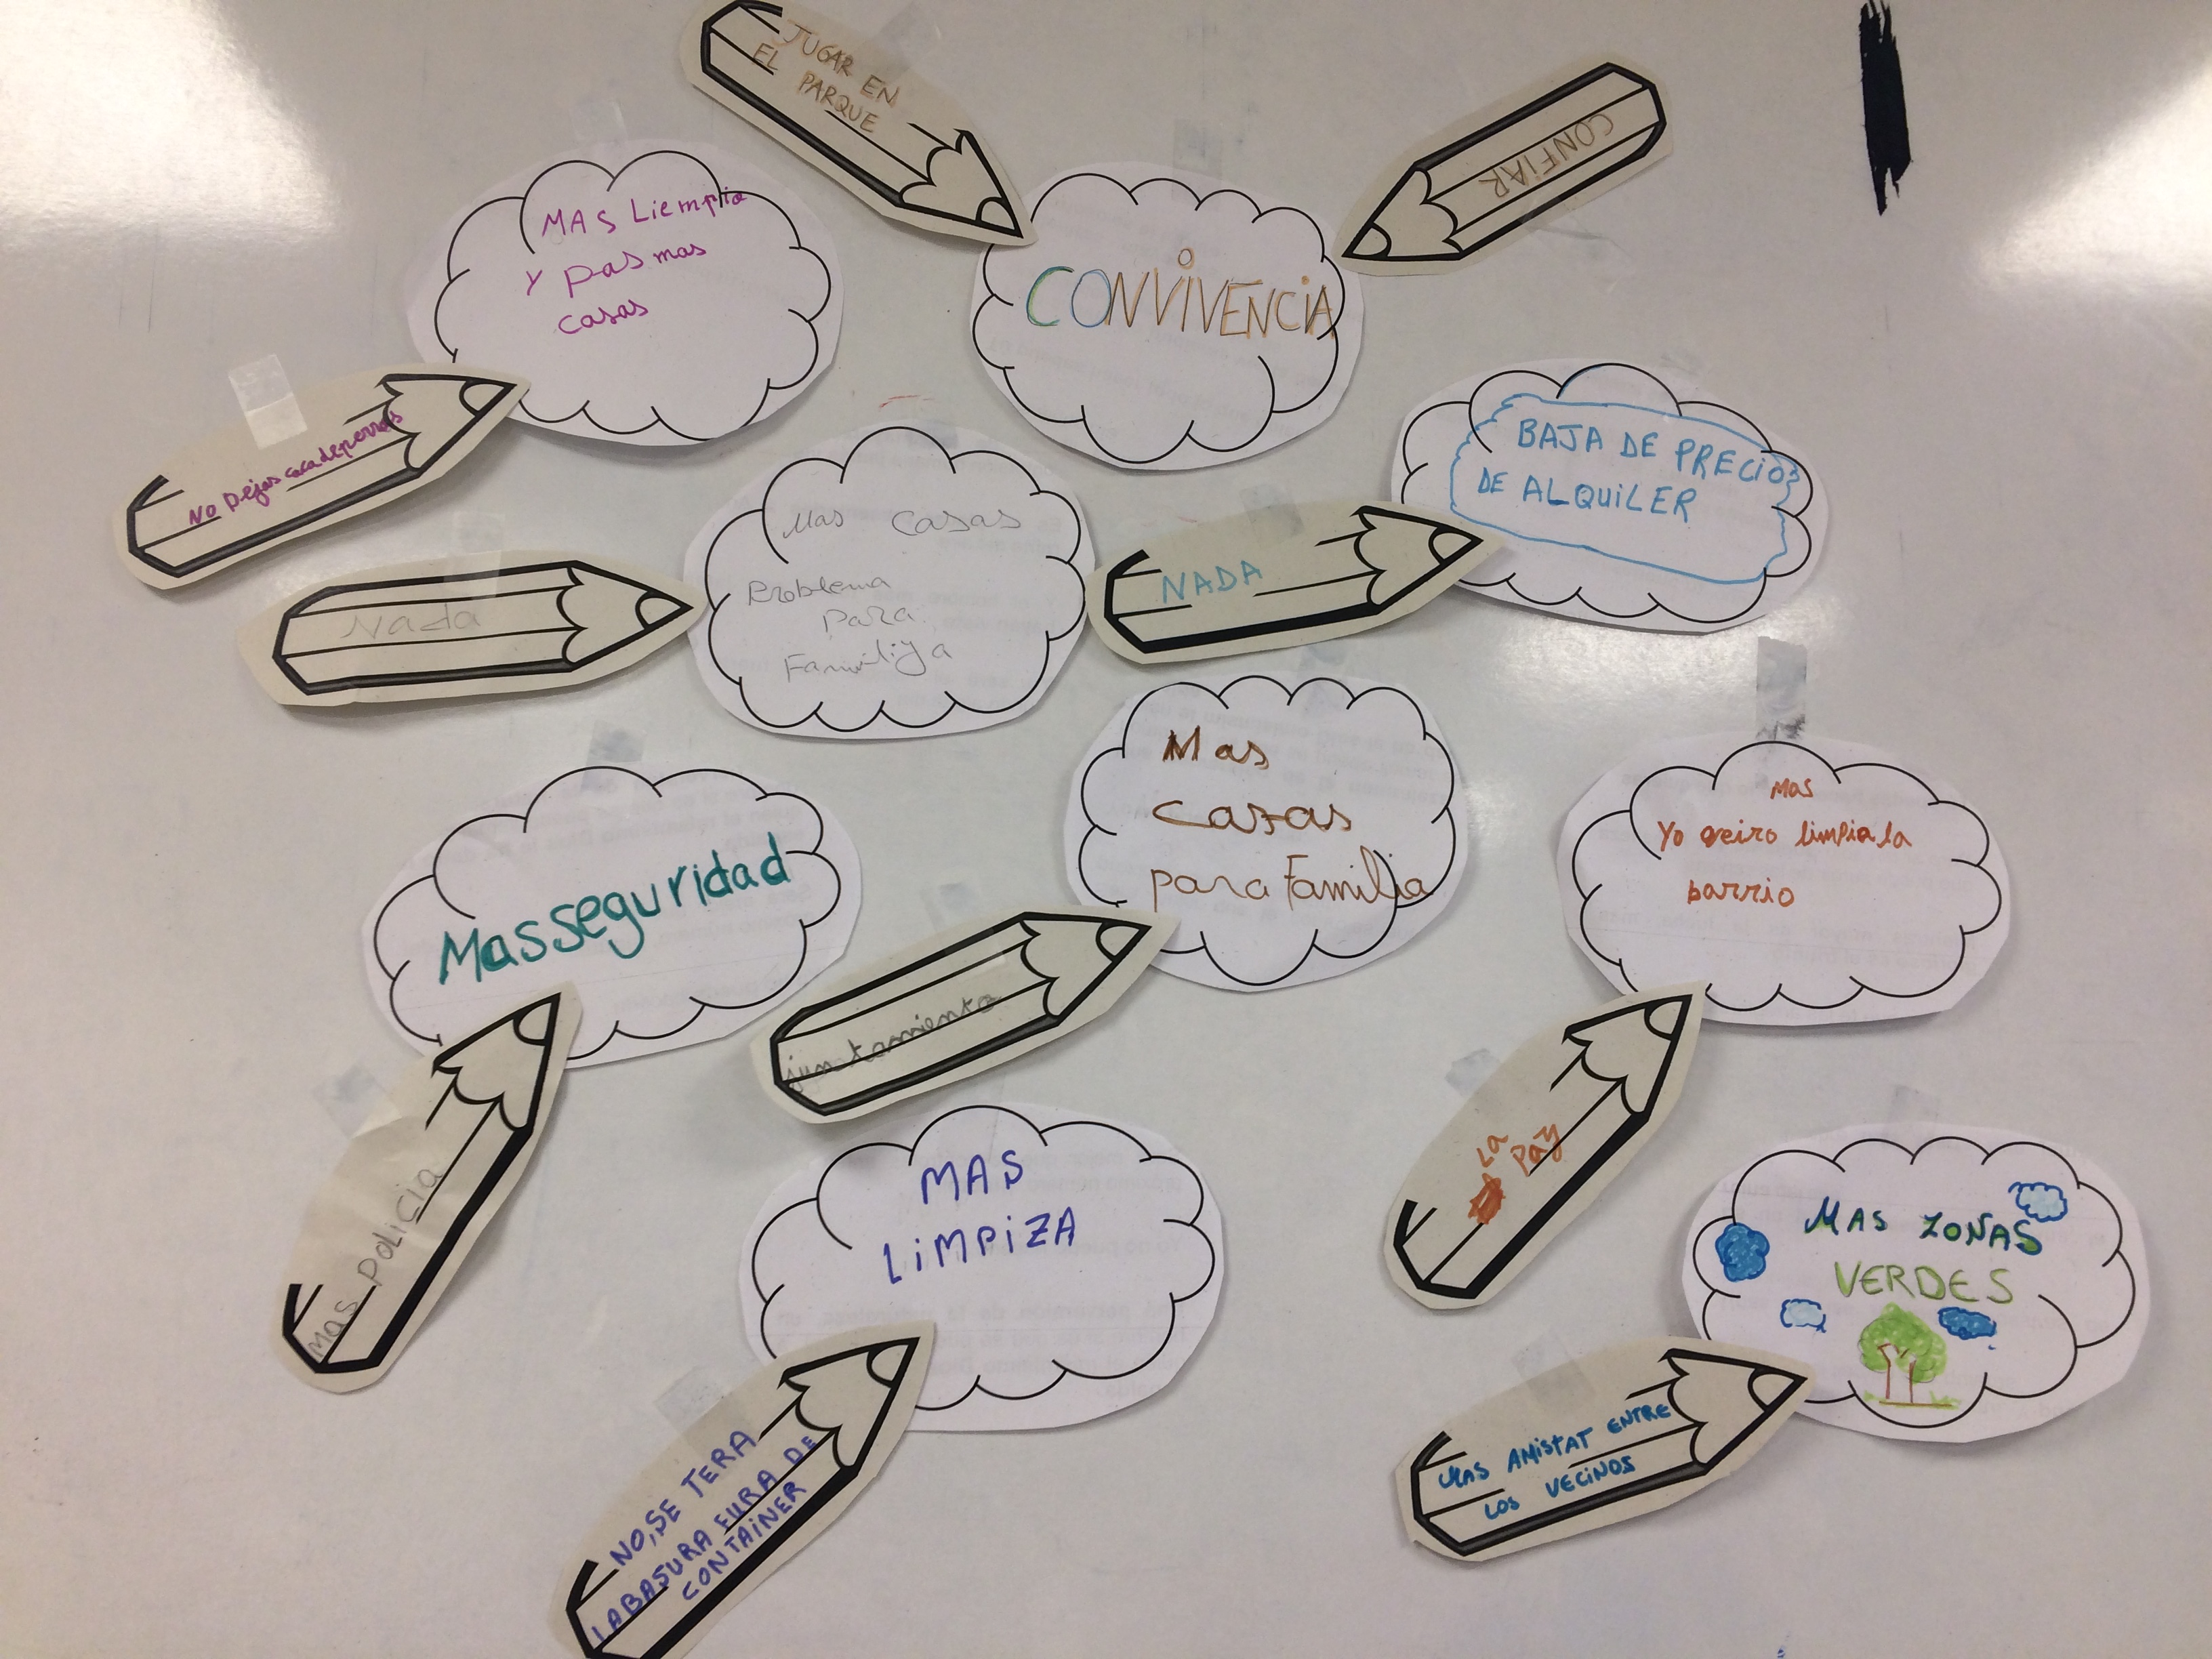 JUGAR EN
EL PARQUE
CONFiAR
MAS Liempia
Y pas mas
casas
CONViVENCiA
No Dejas caca de perros
BAJA DE PRECiOS
DE ALQUiLER
Mas casas
Problema
para
Familiya
NADA
Nada
Mas
casas
para Familia
Mas
Yo qeiro limpia la
barrio
Mas seguridad
juntamiento
La
Pay
MAS POLICIA
MAS
LiMPiZA
MAS ZONAS
VERDES
MAS AMiSTAT ENTRE
LOS VECiNOS
NO, SE TERA
LA BASURA FURA DE
CONTAiNER